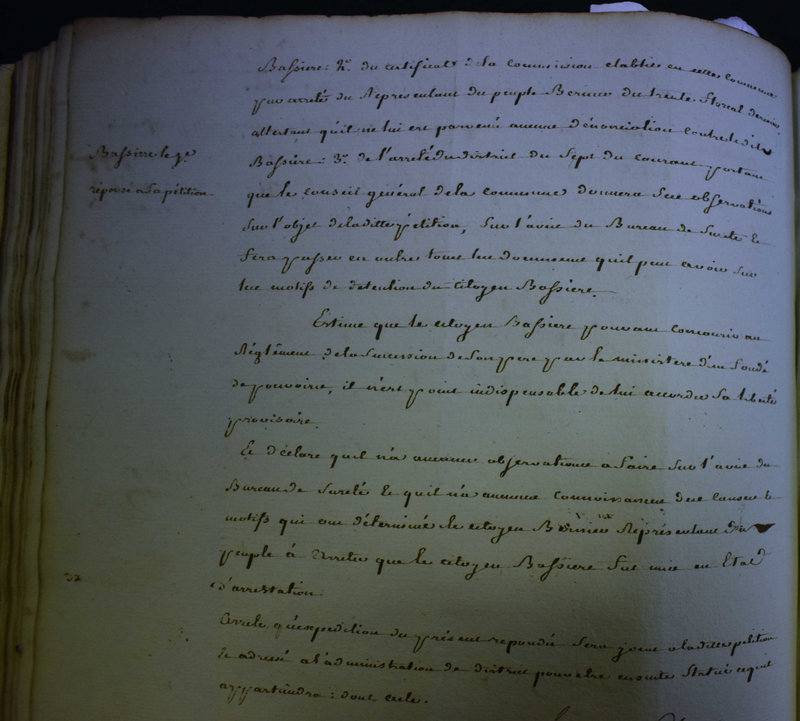 Bassiere: 2o. du certificat: la commission etablie en cette commune
par arreté du Représentant du peuple Bernier du trente floreal dernier
attestant qu'il ne lui est parvenû aucune dénonciation contre ledit
Bassiere le je.
Bassiere: 3o. de l'arrelé du district du Sept du courant portant
réponse a Sa pétition
que le conseil général dela commune donnera Ses observations
Sur l'objet deladitte pétition, Sur l'avis du Bureau de Sureté Et
fera passer en outre tous les documens qu'il peut avoir Sur
les motifs de detention du Citoyen Bassiere.
Estime que le citoyen Bassiere pouvant concourir au
Réglèment dela Succession de Son pere par le ministere d'un fondé
de pouvoirs, il n'est point indispensable de lui accorder Sa liberté
provisoire.
Et déclare qu'il n'a aucunes observations a faire Sur l'avis du
Bureau de Sureté Et qu'il n'a aucune connoissance des causes &
motifs qui ont déterminé le citoyen Bernier Représentant du
peuple à arreter que le citoyen Bassiere fut mis en Etat
32
d'arrestation.
Arrete qu'éxpedition du présent repondû Sera jointe aladitte petition
Et adressé a l'administration de district pour etre ensuite Statué ce qu'il
appartiendra: dont acte.